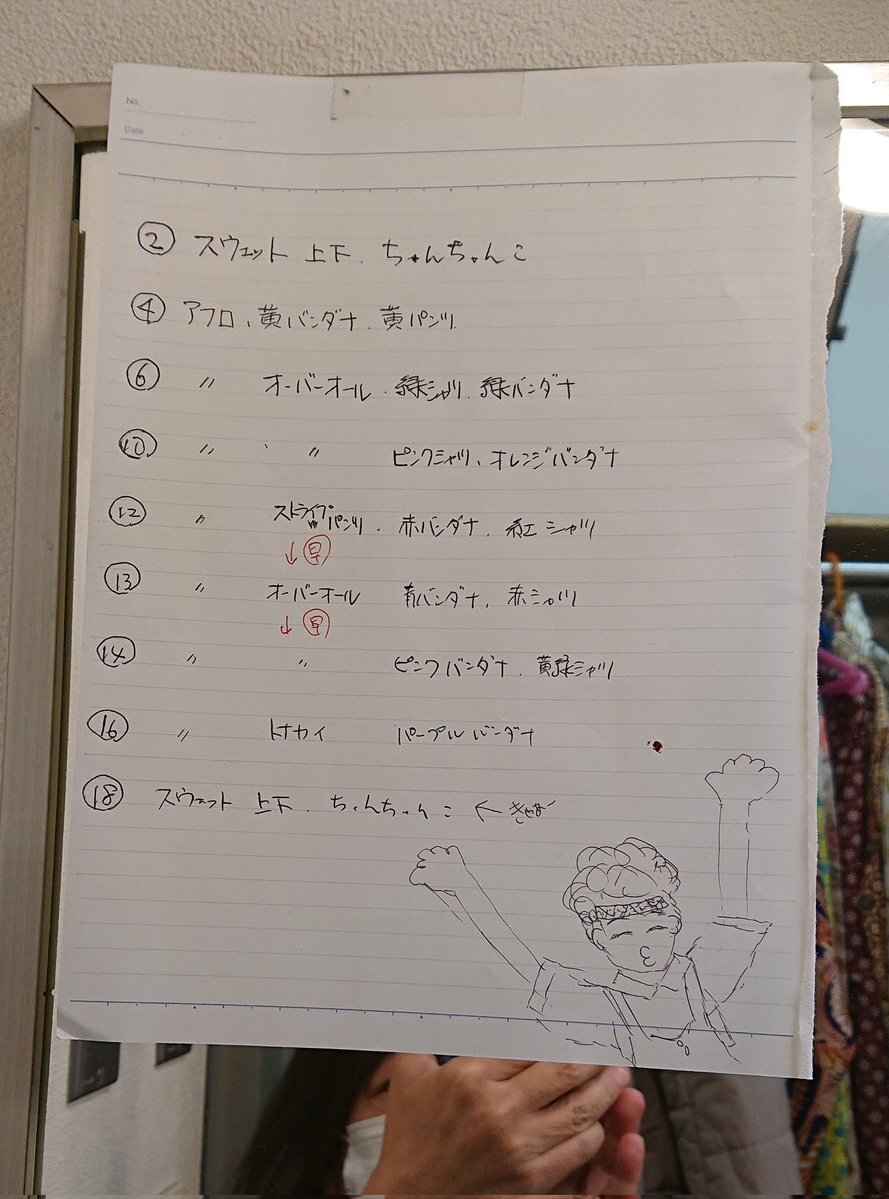 No.
Date
② スウェット 上下、ちゃんちゃんこ
④ アフロ、黄バンダナ、黄パンツ
⑥ 〃 オーバーオール、緑シャツ、緑バンダナ
⑩ 〃 〃 ピンクシャツ、オレンジバンダナ
⑫ 〃 ストライプパンツ、赤バンダナ、紅シャツ
↓早
⑬ 〃 オーバーオール 青バンダナ、赤シャツ
↓早
⑭ 〃 〃 ピンクバンダナ、黄緑シャツ
⑯ 〃 トナカイ パープルバンダナ
⑱ スウェット 上下、ちゃんちゃんこ ←